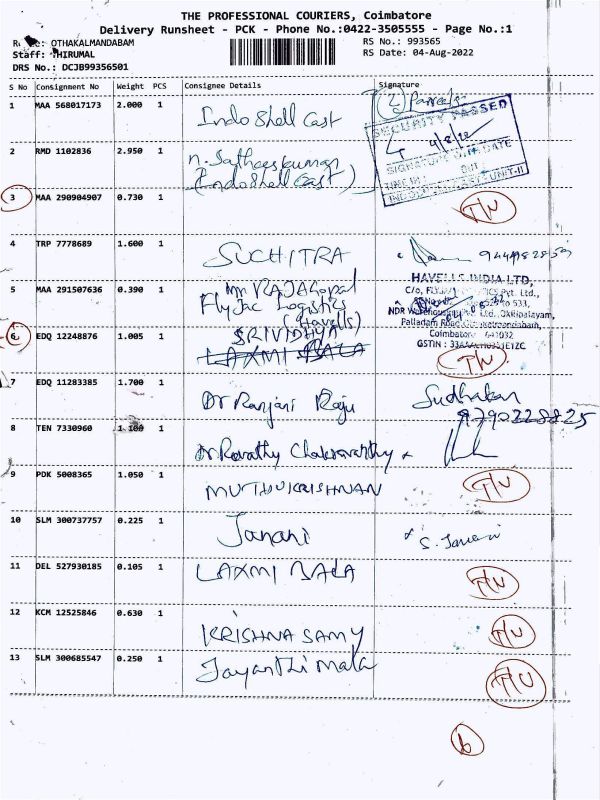 THE PROFESSIONAL COURIERS, Coimbatore
Delivery Runsheet - PCK - Phone No.:0422-3505555 - Page No.:1
OTHAKALMANDABAM
RS No.: 993565
Staff: THIRUMAL
RS Date: 04-Aug-2022
DRS No.: DCJB99356501
S No Consignment No Weight PCS Consignee Details Signature
1 MAA 568017173 2.000 1 Indo Shell Cast (2) Parcels
SECURITY PASSED
4/8/22
SIGNATURE WITH DATE
TIME IN: OUT:
2 RMD 1102836 2.950 1 n. Satheeskumar
(Indo Shell Cast)
3 MAA 290904907 0.730 1 T/N
4 TRP 7778689 1.600 1 SUCHITRA
5 MAA 291507636 0.390 1 Mr RAJAGopal
FlyJac Logistics
(Havells)
HAVELLS INDIA LTD,
Pvt. Ltd.,
Palladam Road
Coimbatore
6 EDQ 12248876 1.005 1 SRIVIDHYA
LAXMI BALA
T/N
7 EDQ 11283385 1.700 1 Dr Ranjani Raju Sudhakar
9790228825
8 TEN 7330960 1.100 1 Dr Revathy Chakravarthy
9 PDK 5008365 1.050 1 MUTHUKRISHNAN T/N
10 SLM 300737757 0.225 1 Janani S. Janani
11 DEL 527930185 0.105 1 LAXMI BALA T/N
12 KCM 12525846 0.630 1 KRISHNA SAMY T/N
13 SLM 300685547 0.250 1 Jayanthi mala T/N
6